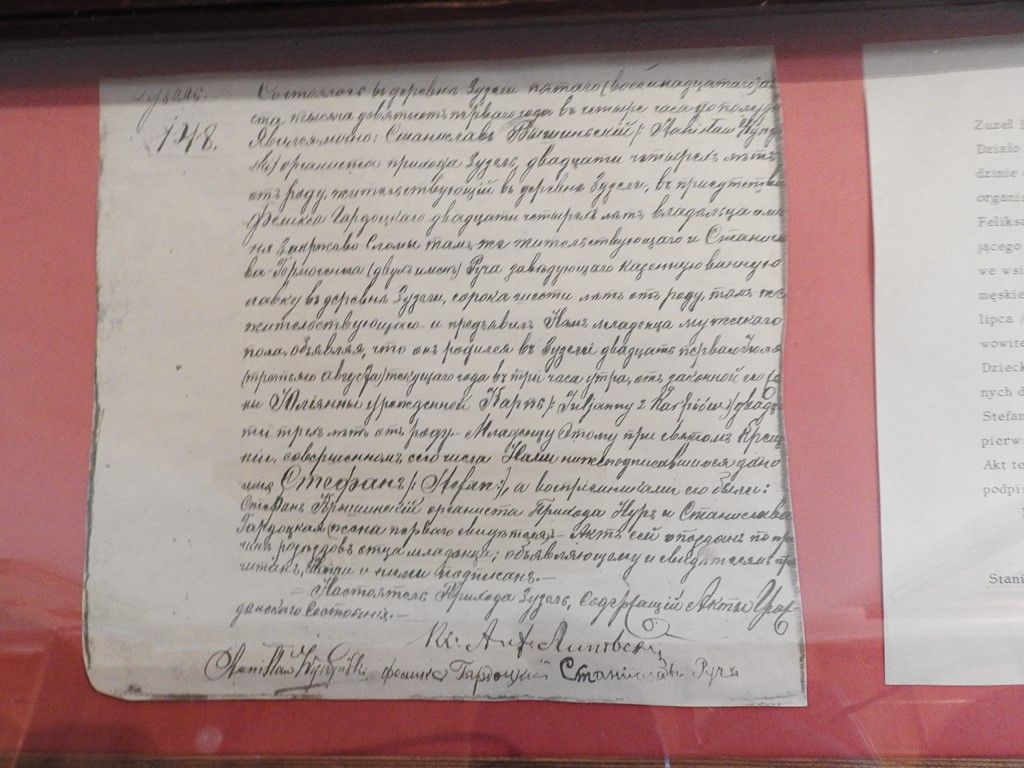 Зузель.
148.
Состоялось въ деревнѣ Зузели пятаго (восемнадцатаго)
ста тысяча девятьсотъ перваго года въ четыре часа до полудня
Явился лично: Станиславъ Вышинскій /: Stanisław
органиста прихода Зузель, двадцати четырехъ лѣтъ
отъ роду, жительствующій въ деревнѣ Зузели, въ присутствіи
Феликса Гардоцкаго двадцати четырехъ лѣтъ владѣльца имѣ-
нія Закржево Сломы тамъ же жительствующаго и Станисла-
ва Гермогена (двухъ именъ) Руча завѣдующаго казенную винную
лавку въ деревнѣ Зузели, сорока шести лѣтъ отъ роду, тамъ же
жительствующаго и предъявилъ Намъ младенца мужескаго
пола, объявляя, что онъ родился въ Зузели двадцать перваго Іюля
(третьяго Августа) текущаго года въ три часа утра, отъ законной его же-
ны Юліянны урожденной Карпь /: Juljanny z Karpiów :/ двадца-
ти трехъ лѣтъ отъ роду. Младенцу этому при святомъ Креще-
ніи, совершенномъ сего числа Нами нижеподписавшимся дано
имя Стефанъ /: Stefan :/, а воспріемниками его были:
Стефанъ Крышинскій органиста Прихода Нуръ и Станислава
Гардоцкая жена перваго свидѣтеля. Актъ сей опозданъ по при-
чинѣ отца младенца; объявляющему и свидѣтелямъ про-
читанъ, Нами и ними подписанъ.
Настоятель Прихода Зузель, Содержащій Акты Граж-
данскаго Состоянія.
Кс:
Stanisław Wyszyński Феликсъ Гардоцкій Станиславъ Ручъ
Zuzel
Działo
dzinie
organi
Feliks
jącego
we wsi
męskie
lipca /
wowite
Dzieck
nych d
Stefan
pierw
Akt te
podpi
Stani